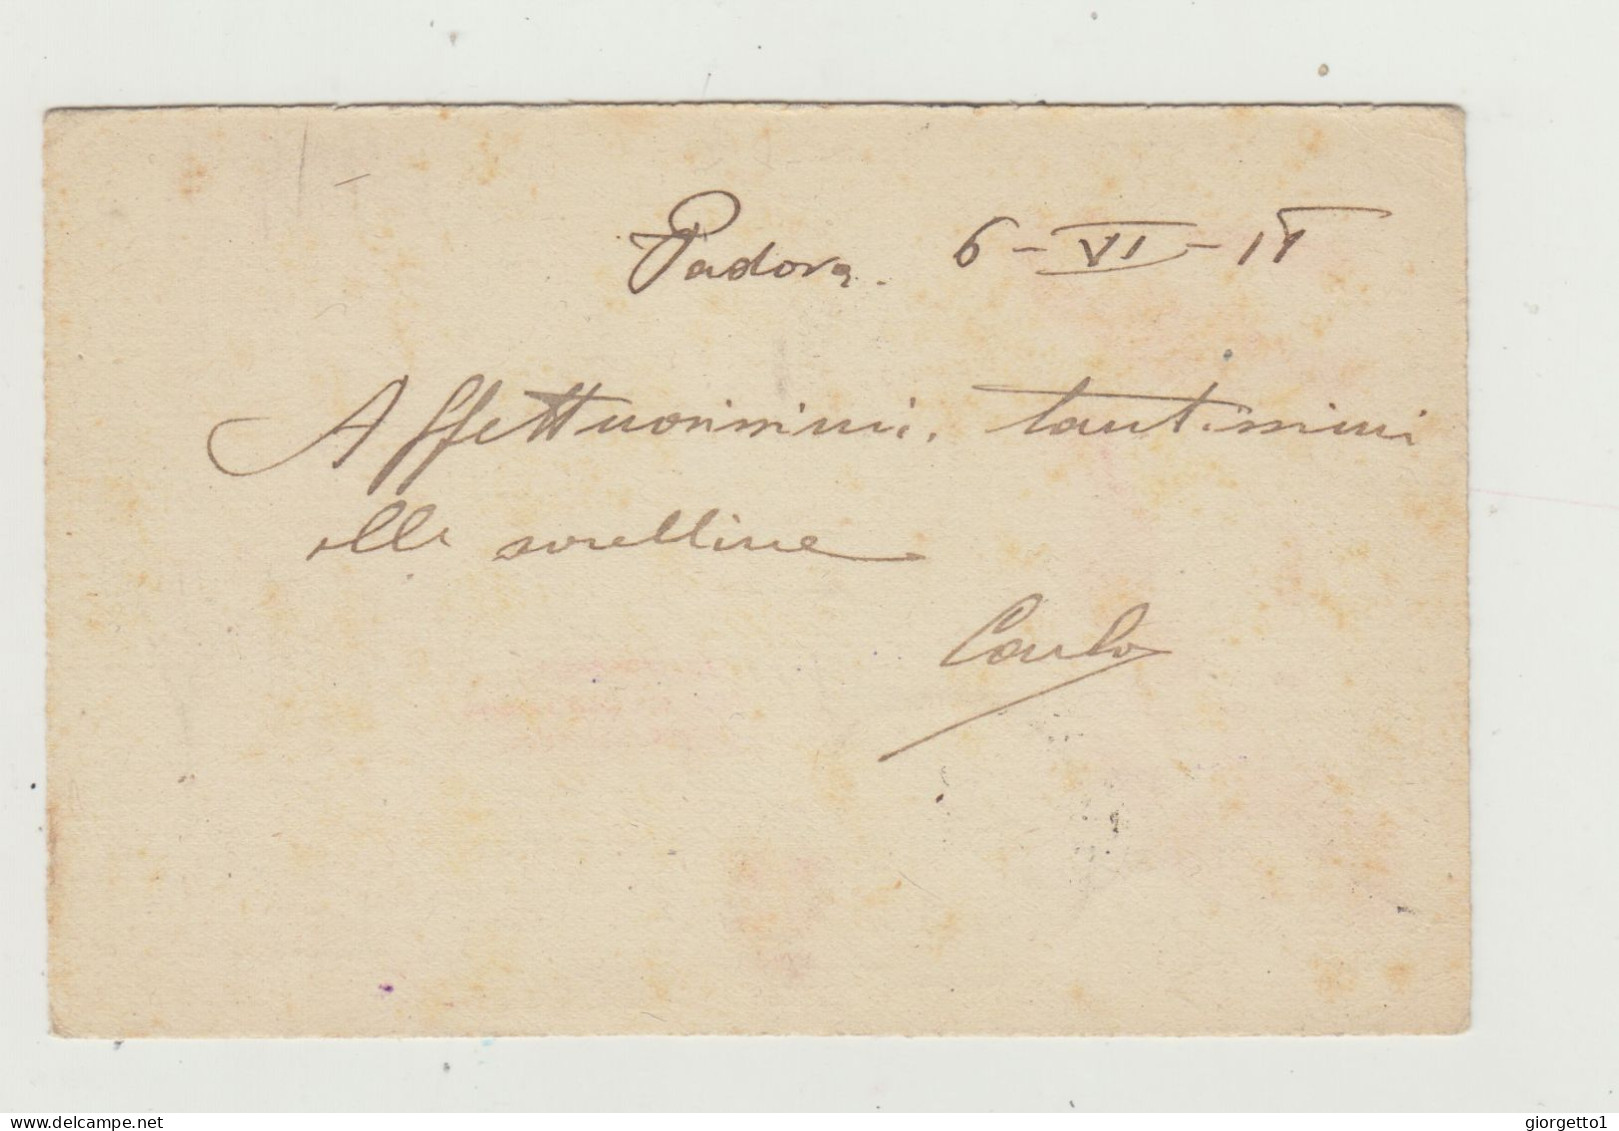 Padova. 6-VI-18
Affettuosissimi, tantissimi
alle sorelline
Carlo
giorgetto1
www.delcampe.net